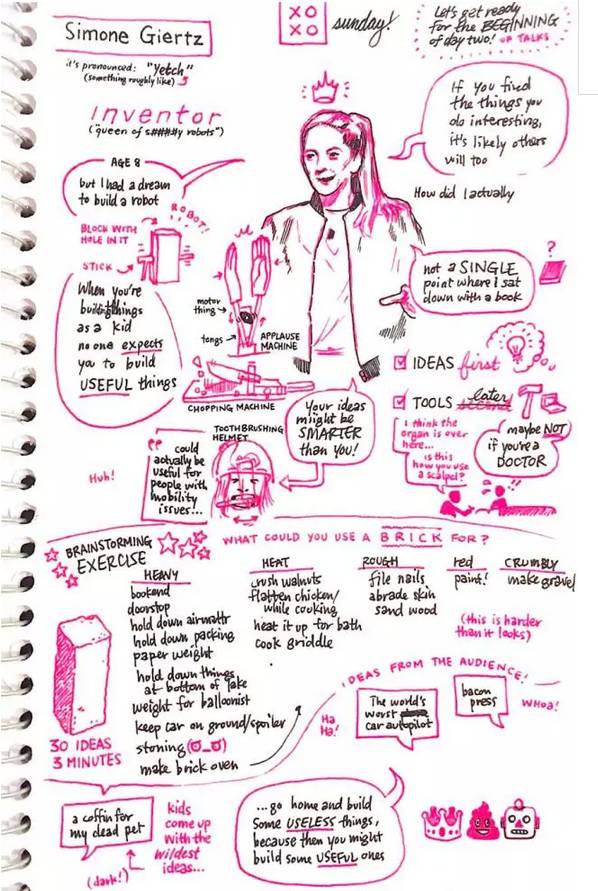 Simone Giertz
XO
XO
sunday!
Let's get ready
for the BEGINNING
of day two! OF TALKS
it's pronounced: "Yetch"
(something roughly like)
inventor
("queen of s####y robots")
If you find
the things you
do interesting,
it's likely others
will too
AGE 8
but I had a dream
to build a robot
ROBOT!
BLOCK WITH
HOLE IN IT
STICK
How did I actually
not a SINGLE
point where I sat
down with a book
?
When you're
building things
as a kid
no one expects
you to build
USEFUL things
motor
thing
tongs
APPLAUSE
MACHINE
CHOPPING MACHINE
IDEAS first
TOOLS later
Your ideas
might be
SMARTER
than you!
TOOTHBRUSHING
HELMET
could
actually be
useful for
people with
mobility
issues!...
Huh!
I think the
organ is over
here...
is this
how you use
a scalpel?
maybe NOT
if you're a
DOCTOR
!!
BRAINSTORMING
EXERCISE
WHAT COULD YOU USE A BRICK FOR?
HEAVY
bookend
doorstop
hold down airmattr
hold down packing
paper weight
hold down things
at bottom of lake
weight for balloonist
keep car on ground/spoiler
stoning
make brick oven
HEAT
crush walnuts
flatten chicken/
while cooking
heat it up for bath
cook griddle
ROUGH
file nails
abrade skin
sand wood
red
paint!
CRUMBLY
make gravel
(this is harder
than it looks)
30 IDEAS
3 MINUTES
IDEAS FROM THE AUDIENCE!
Ha
Ha!
The world's
worst
car autopilot
bacon
press
WHOA!
a coffin for
my dead pet
(dark!)
kids
come up
with the
wildest
ideas...
...go home and build
some USELESS things,
because then you might
build some USEFUL ones